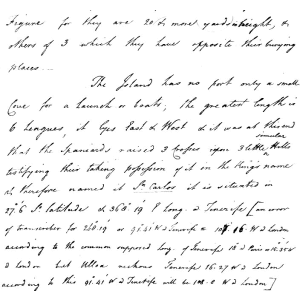 figure for they are 20 & more yards in height, &
others of 3 which they have opposite their burying
places...
The Island has no port only a small
Cove for a launch or boats; the greatest length is
6 Leagues, it lyes East & West & it was at this end
similar
that the Spaniards raised 3 Crosses upon 3 little Hills
testifying their taking possession of it in the Kings name
& therefore named it Sn. Carlos it is situated in
27°6 S. latitude & 268°19 long. d Teneriffe [an error
of transcriber for 268.19 or 91°41 W d Teneriffe = W d London
according to the common supposed long. of Teneriffe 18 d Paris or
d London but Ulloa reckons Teneriffe 16.27 W d London
according to this 91.41 W d Teneriffe will be 108.8 W d London]